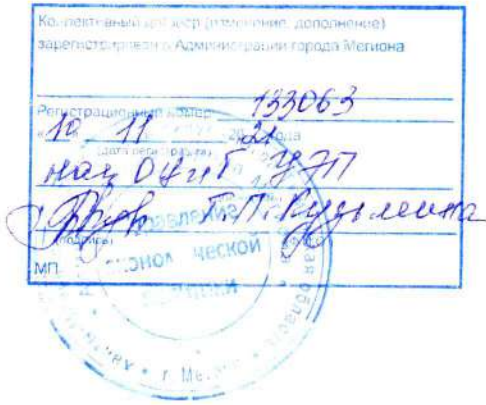 Коллективный договор (изменение, дополнение)
зарегистрирован в Администрации города Мегиона
Регистрационный номер 133063
«10 11 2021 года
(дата регистрации)
нач ОУиТ УЭП
Т.П. Кузьмина
(подпись)
МП
управление
экономической
политики
г. Мегион